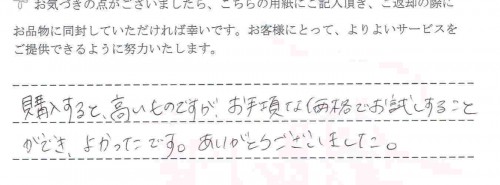 お気づきの点がございましたら、こちらの用紙にご記入頂き、ご返却の際に
お品物に同封していただければ幸いです。お客様にとって、よりよいサービスを
ご提供できるように努力いたします。
購入すると、高いものですが、お手頃な価格でお試しすること
ができ、よかったです。ありがとうございました。